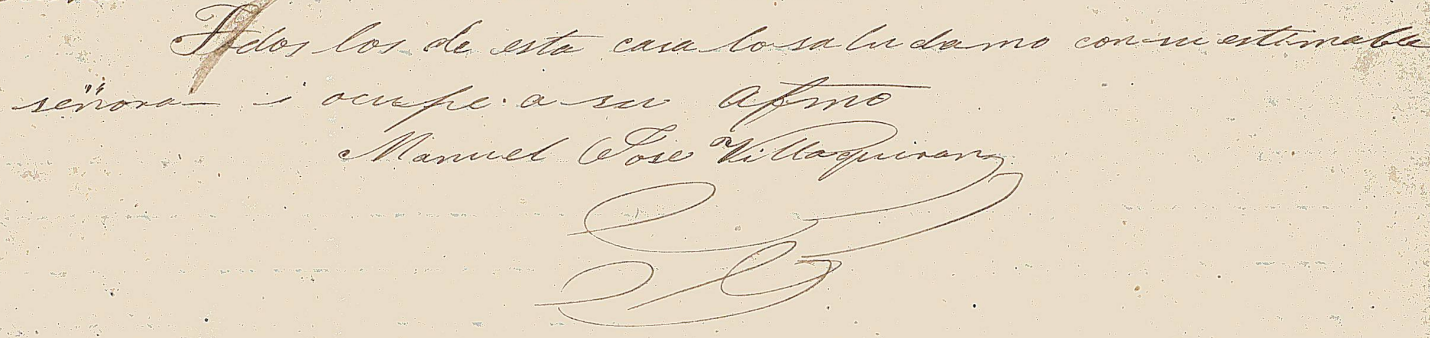 Todos los de esta casa lo saludamo con su estimable
señora i ocupe a su afmo
Manuel Jose Villaquiran